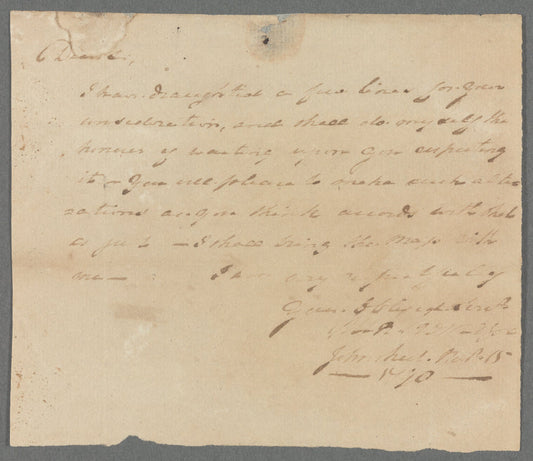 Dear Sir,
I have draughted a few lines for your
consideration, and shall do myself the
honour of waiting upon you respecting
it – You will please to make such alte
rations as you think accords with that
is just – I shall bring the Map with
me – I am very respectfully
Your Obligd
John Street